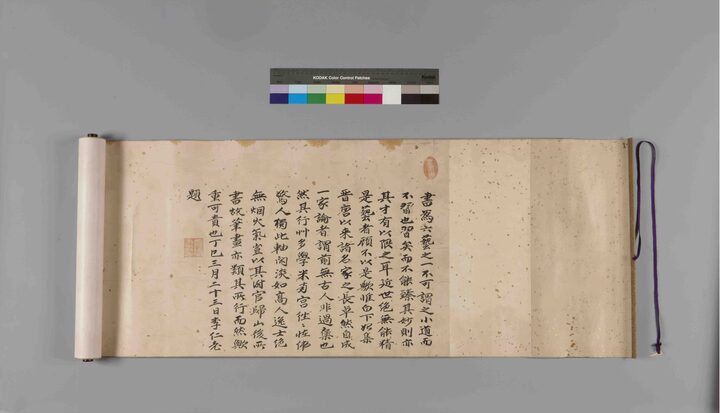 KODAK Color Control Patches
Kodak
書爲六藝之一不可謂之小道而
不習也習矣而不能臻其妙則亦
其才有以限之耳近世絶無能精
是藝者顧不以是歟惟白下始集
晉唐以來諸名家之長卓然自成
一家論者謂前無古人非過也
然其行艸多學米南宫徃〻怪偉
驚人獨此軸閑淡如高人逸士絶
無烟火氣豈以其官歸山後所
書故筆畫亦類其所行而然歟
重可貴也丁巳三月二十三日李仁老
題